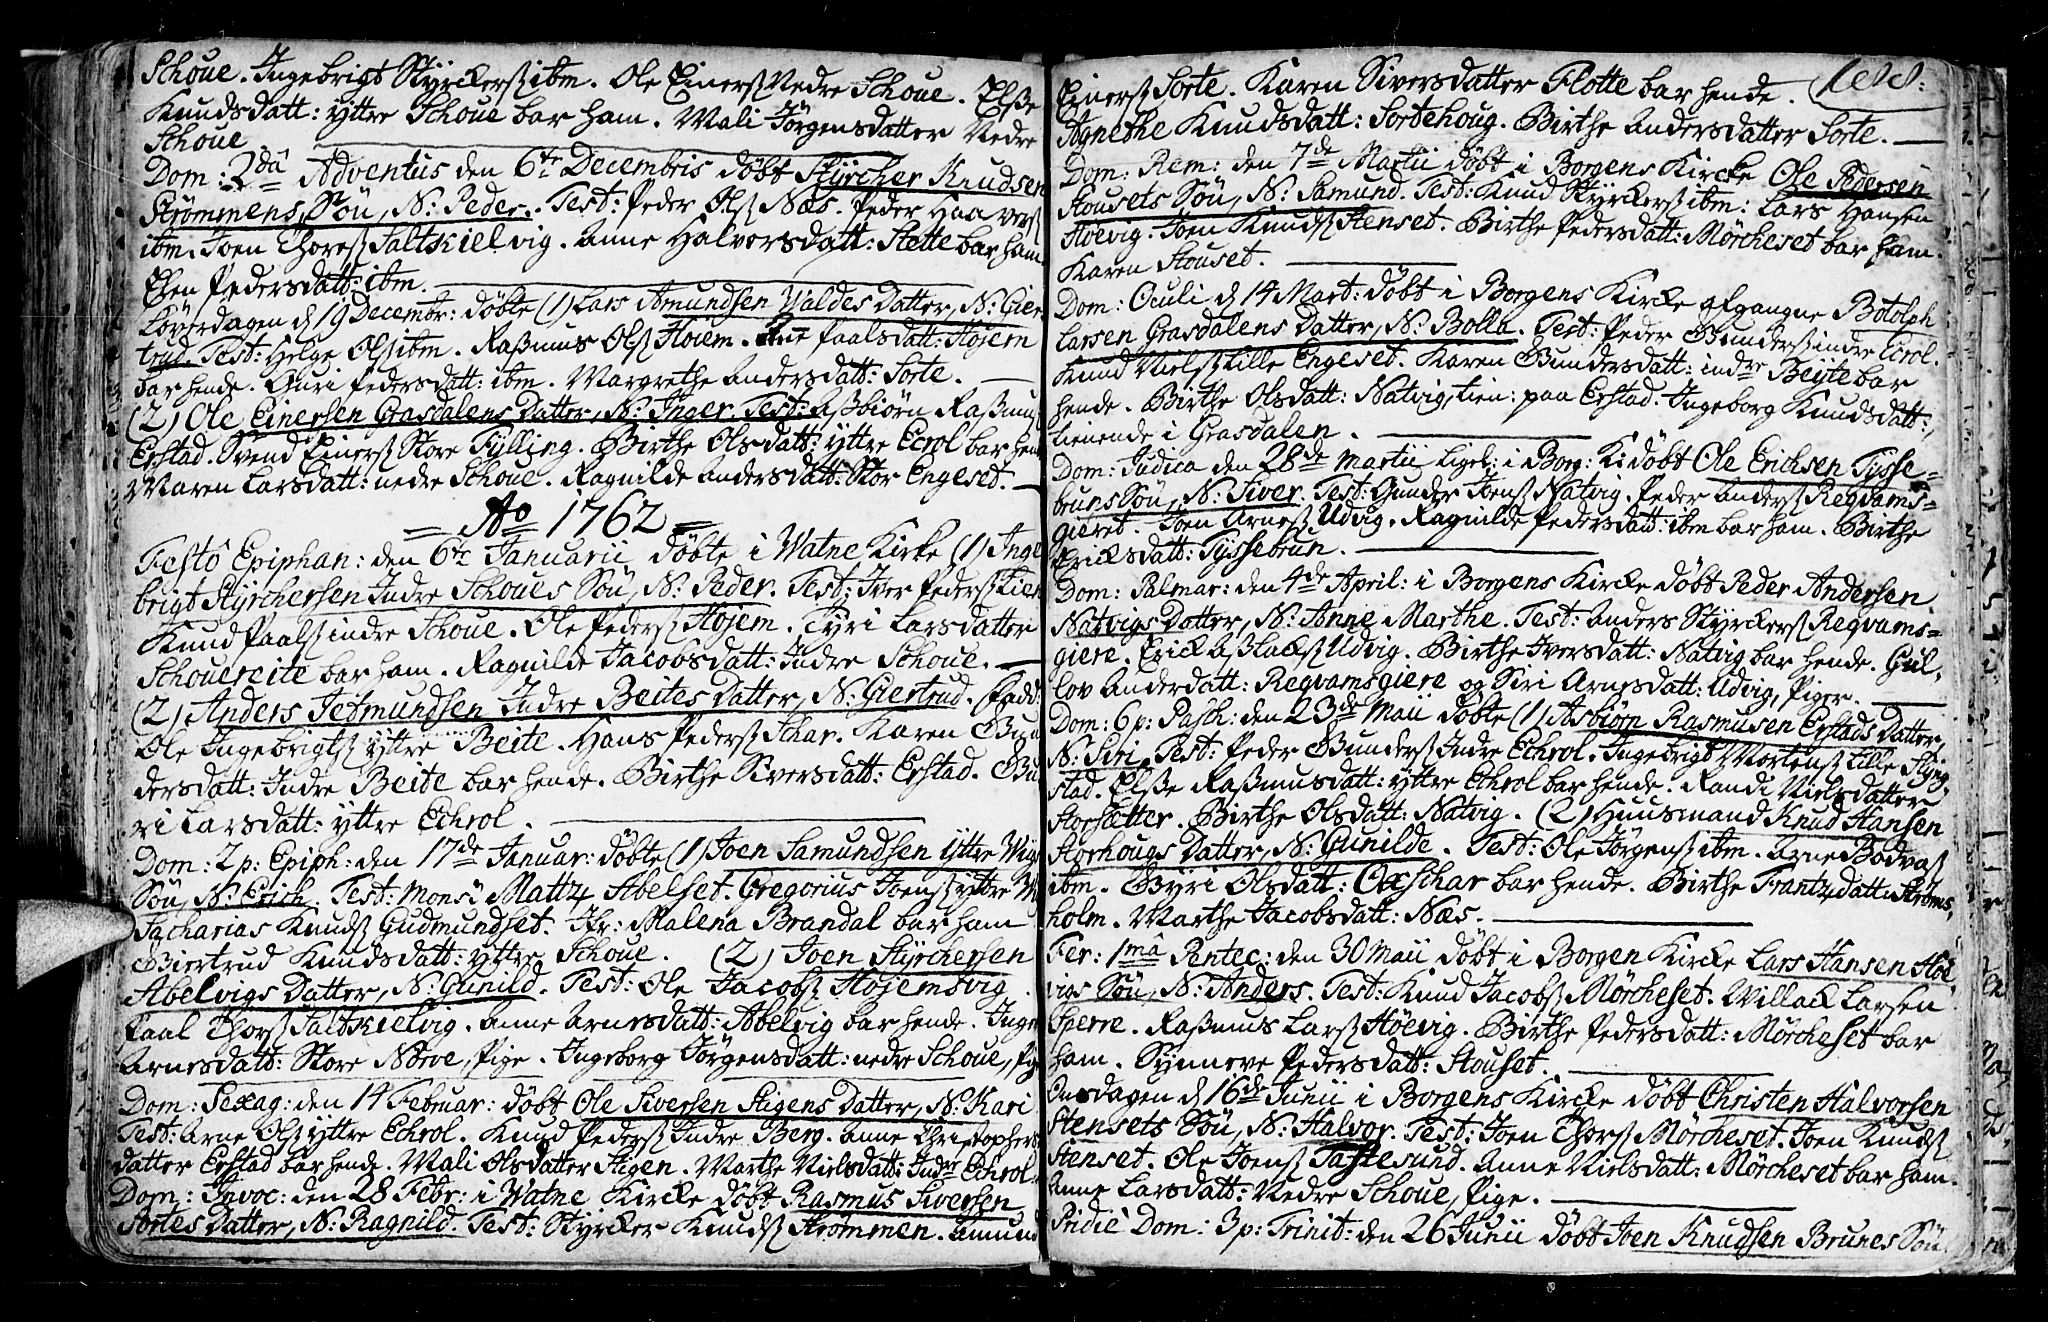 Schoue. Ingebrigt Styrckersß ibm. Ole Einersß Nedre Schoue. Elsße
Knudsdatt: yttre Schoue bar ham. Mali Jörgensdatter Nedre
Schoue
Dom: 2dâ Adventus den 6te Decembris döbt Styrcher Knudsen
Strömmens Sön, N: Peder. Test: Peder Olsß Næs. Peder Haaversß
ibm. Joen Thoresß Saltkielvig. Anne Halvorsdatt: Slette bar ham.
Elen Pedersdatt: ibm.
Löverdagen d 19 Decembr: döbte (1) Lars Amundsen Waldes Datter, N: Gier-
trud. Test: Helge Olsß ibm. Raßmus Olsß Höiem. Ane Paalsdatt: Höjem
bar hende. Guri Pedersdatt: ibm. Margrethe Andersdatt: Sorte.
(2) Ole Einersen Grasdalens Datter, N: Inger. Test: Aßbiörn Raßmusß
Erstad. Svend Einersß Store Fylling. Birthe Olsdatt: yttre Ecrol bar hende
Maren Larsdatt: nedre Schoue. Ragnilde Andersdatt: Stor Engeset.
Ao 1762
Festô Epiphan: den 6te Januarii döbte i Watne Kirke (1) Inge
brigt Styrchersen Indre Schoues Sön, N: Peder. Test: Iver Pedersß Lien
Knud Paalsß indre Schoue. Ole Pedersß Höjem. Tyri Larsdatter
Schouereite bar ham. Ragnilde Jacobsdatt: Indre Schoue.
(2) Anders Jetmundsen Indre Beites Datter, N: Giertrud. Fadd:
Ole Ingebrigtsß yttre Beite. Hans Pedersß Skar. Karen Gun
dersdatt: Indre Beite bar hende. Birthe Siversdatt: Erstad. Gu
ri Larsdatt: yttre Echrol.
Dom: 2 p: Epiph: den 17de Januar: döbte (1) Joen Samundsen yttre Wigs
Sön, N: Erich. Test: Monsr Mattz Abelset. Gregorius Joensß yttre Wi
Zacharias Knudsß Gudmundset. Jfr: Malena Brandal bar ham
Giertrud Knudsdatt: yttre Schoue. (2) Joen Styrchersen
Abelvigs Datter, N: Gunild. Test: Ole Jacobsß Höjemsvig.
Paal Thorsß Saltkielvig. Anne Arnesdatt: Abelvig bar hende. Inge
Arnesdatt: Store Nörve, Pige. Ingeborg Jörgensdatt: nedre Schoue, Pige
Dom: Sexag: den 14 Februar: döbt Ole Siversen Stigens Datter, N: Kari
Test: Arne Olsß yttre Echrol. Knud Pedersß Indre Berg. Anne Christophers
datter Erstad bar hende. Mali Olsdatter Stigen. Marthe Nielsdatt: Indre Echrol
Dom: Invoc: den 28 Febr: i Watne Kircke döbt Rasmus Siversen
Sortes Datter, N: Ragnild. Test: Styrcker Knudsß Strömmen. Amund
Einersß Sorte. Karen Siversdatter Flotte bar hende.
Agnethe Knudsdatt: Sortehoug. Birthe Andersdatter Sorte.
Dom: Rem: den 7de Martii döbt i Borgens Kircke Ole Pedersen
Stousets Sön, N: Samund. Test: Knud Styrckersß ibm: Lars Hansen
Höevig. Joen Knudsß Stenset. Birthe Pedersdatt: Mörcheset bar ham.
Karen Stouset.
Dom: Oculi d 14 Mart: döbt i Borgens Kircke afgangne Botolph
Larsen Grasdalens Datter, N: Bolla. Test: Peder Gundersß indre Ecrol.
Knud Nielsß Lille Engeset. Karen Gundersdatt: indre Beyte bar
hende. Birthe Olsdatt: Natvig, tien: paa Erstad. Ingeborg Knudsdatt:,
tienende i Grasdalen.
Dom: Judica den 28de Martii ligel: i Borg: K: döbt Ole Erichsen Tysse-
bruns Sön, N: Siver. Test: Gunder Joensß Natvig. Peder Andersß Reqvams-
gieret. Joen Arnesß Udvig. Ragnilde Pedersdatt: ibm bar ham. Birthe
Ericksdatt: Tyssebrun.
Dom: Palmar: den 4de April: i Borgens Kircke döbt Peder Andersen
Natvigs Datter, N: Anne Marthe. Test: Anders Styrckersß Reqvams-
giere. Erick Aßlacksß Udvig. Birthe Iversdatt: Natvig bar hende. Gul-
lov Anderdatt: Reqvamsgiere og Siri Arnesdatt: Udvig, Piger.
Dom: 6 p: Pasch: den 23de Maii döbte (1) Asbiörn Rasmusen Erstads Datter,
N: Siri. Test: Peder Gundersß Indre Echrol. Ingebrigt Mortensß Lille Slyng-
stad. Elsße Raßmusdatt: yttre Echrol bar hende. Randi Nielsdatter
Storsætter. Birthe Olsdatt: Natvig. (2) Huusmand Knud Hansen
Storhougs Datter, N: Gunilde. Test: Ole Jörgensß ibm. Arne Bodvasß
ibm. Gyri Olsdatt: Oxschar bar hende. Birthe Frantzdatt: Ströms-
holm. Marthe Jacobsdatt: Næs.
Fer: 1mâ Pentec: den 30 Maii döbt i Borgen Kircke Lars Hansen Höe-
vigs Sön, N: Anders. Test: Knud Jacobsß Mörcheset. Willack Larsen
Sperre. Raßmus Larsß Höevig. Birthe Pedersdatt: Mörcheset bar
ham. Synneve Pedersdatt: Stouset.
Onsdagen d 16de Junii i Borgens Kircke döbt Christen Halvorsen
Stensets Sön, N: Halvor. Test: Joen Thorsß Mörcheset. Joen Knudsß
Stenset. Ole Joensß Taftesund. Anne Nielsdatt: Mörcheset bar ham.
Anne Larsdatt: Nedre Schoue, Pige.
Pridie Dom: 3 p: Trinit: den 26 Junii döbt Joen Knudsen Brunes Sön